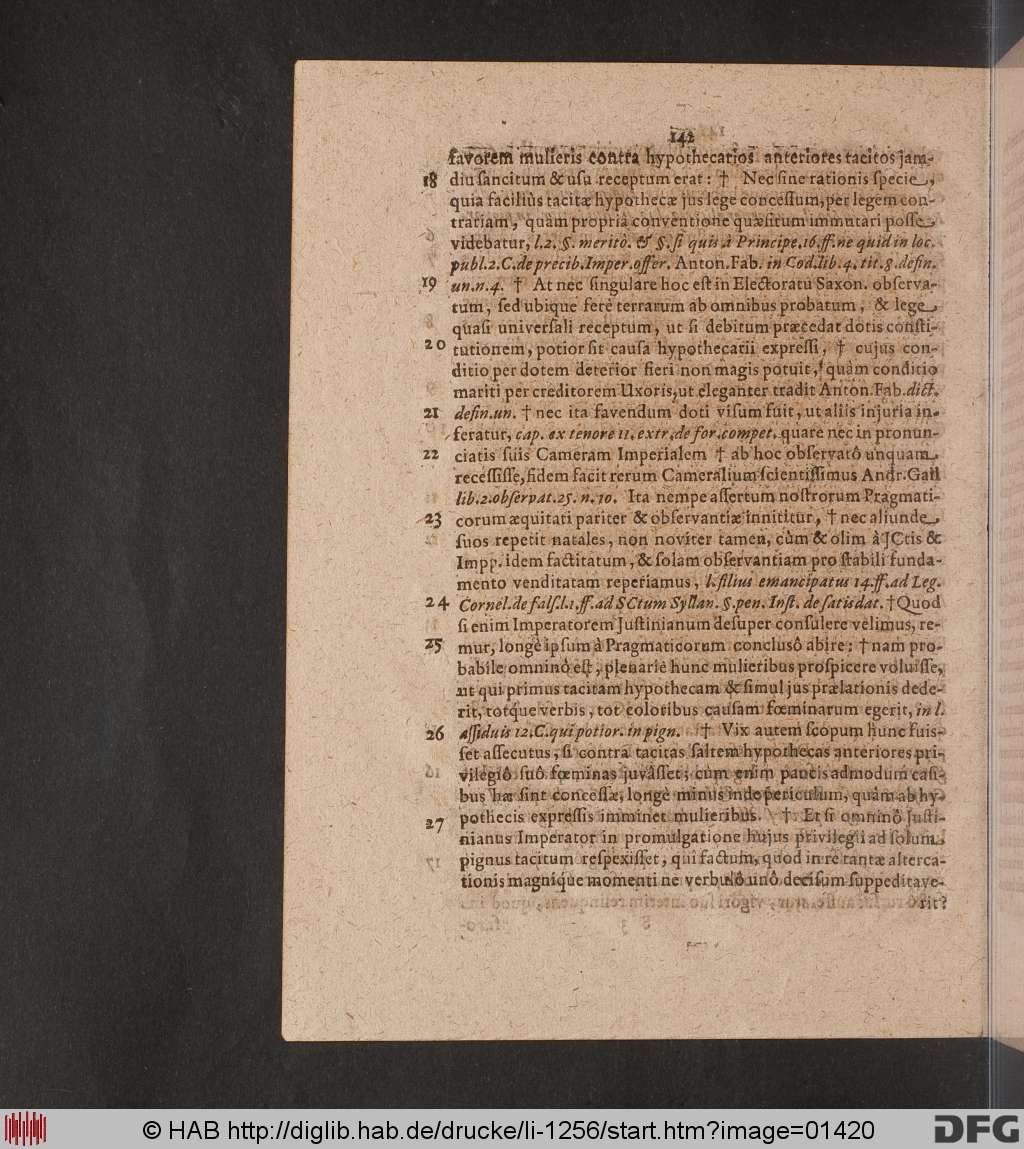 142
favorem mulieris contra hypothecarios anteriores tacitos jam-
18 diu sancitum & usu receptum erat: † Nec sine rationis specie,
quia faciliùs tacitæ hypothecæ jus lege concessum, per legem con-
trariam, quàm propriâ conventione quæsitum immutari posse
videbatur, l. 2. §. meritò. & §. si quis à Principe. 16. ff. ne quid in loc.
publ. 2. C. de precib. Imper. offer. Anton. Fab. in Cod. lib. 4. tit. 8. defin.
19 un. n. 4. † At nec singulare hoc est in Electoratu Saxon. observa-
tum, sed ubique ferè terrarum ab omnibus probatum, & lege
quasi universali receptum, ut si debitum præcedat dotis consti-
20 tutionem, potior sit causa hypothecarii expressi, † cujus con-
ditio per dotem deterior fieri non magis potuit, quàm conditio
mariti per creditorem Uxoris, ut eleganter tradit Anton. Fab. dict.
21 defin. un. † nec ita favendum doti visum fuit, ut aliis injuria in-
feratur, cap. ex tenore 11. extr. de for. compet. quare nec in pronun-
22 ciatis suis Cameram Imperialem † ab hoc observatô unquam
recessisse, fidem facit rerum Cameralium scientissimus Andr. Gail
lib. 2. observat. 25. n. 10. Ita nempe assertum nostrorum Pragmati-
23 corum æquitati pariter & observantiæ innititur, † nec aliunde
suos repetit natales, non noviter tamen, cùm & olim à JCtis &
Impp. idem factitatum, & solam observantiam pro stabili funda-
mento venditatam reperiamus, l. filius emancipatus 14. ff. ad Leg.
24 Cornel. de fals. l. 1. ff. ad SCtum Syllan. §. pen. Inst. de satisdat. † Quod
si enim Imperatorem Justinianum desuper consulere velimus, re-
25 mur, longè ipsum à Pragmaticorum conclusô abire: † nam pro-
babile omninò est, plenariè hunc mulieribus prospicere voluisse,
ut qui primus tacitam hypothecam & simul jus prælationis dede-
rit, totque verbis, tot coloribus causam fœminarum egerit, in l.
26 assiduis 12. C. qui potior. in pign. † Vix autem scopum hunc fuis-
set assecutus, si contra tacitas saltem hypothecas anteriores pri-
vilegiô suô fœminas juvâsset; cum enim paucis admodum casi-
bus hæ sint concessæ, longè minus inde periculum, quàm ab hy-
pothecis expressis imminet mulieribus. † Et si omninô Justi-
27 nianus Imperator in promulgatione hujus privilegii ad solum
pignus tacitum respexisset, qui factum, quod in re tantæ alterca-
tionis magnique momenti ne verbulô unô decisum suppeditave-
rit?
© HAB http://diglib.hab.de/drucke/li-1256/start.htm?image=01420
DFG